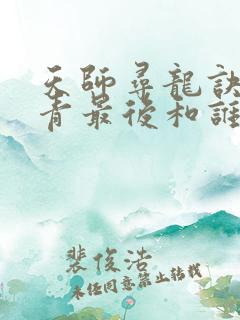 天師尋龍訣
青最後和誰
裴俊浩
未任同意禁止轉載